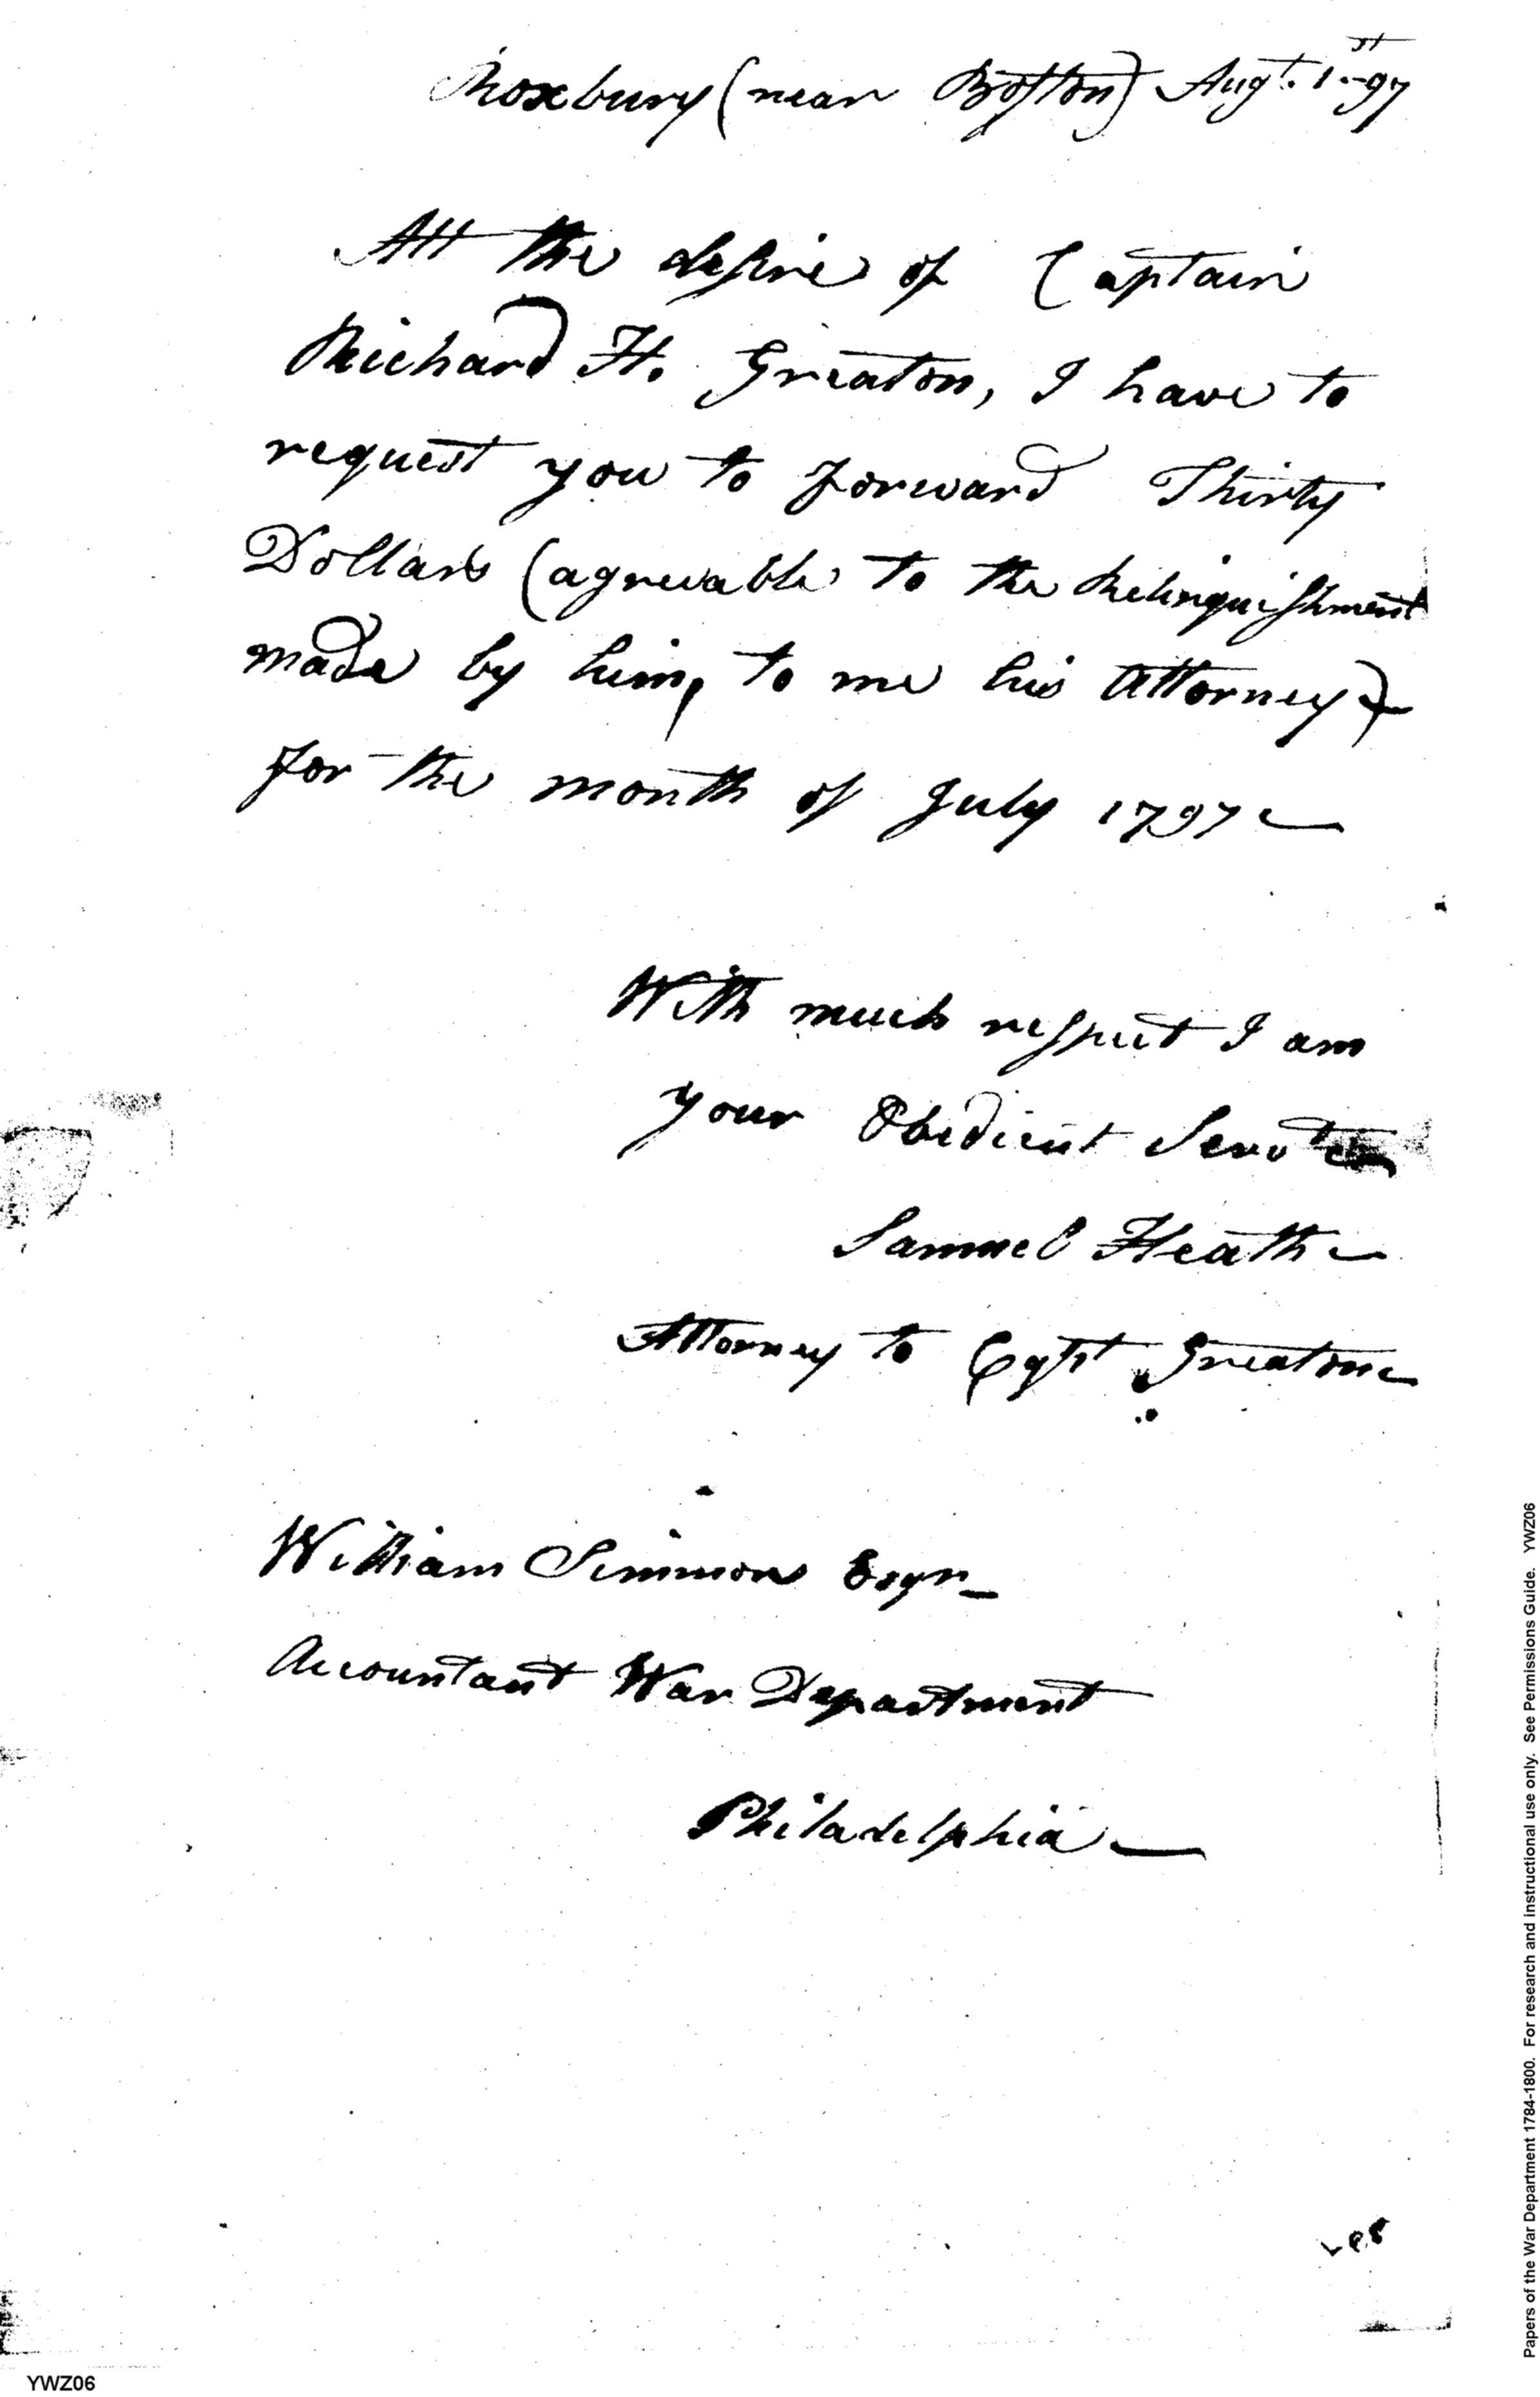 Roxbury (near Boston) Augt. 1st 97
Att the desire of Captain
Richard H. Greaton, I have to
request you to forward Thirty
Dollars (agreeable to the Relinquishment
made by him, to me his Attorney)
for the month of July 1797
With much respect I am
your Obedient Servt
Samuel Heath
Attorney to Capt Greaton
William Simmons Esqr
Accountant War Department
Philadelphia
YWZ06
Papers of the War Department 1784-1800. For research and instructional use only. See Permissions Guide. YWZ06